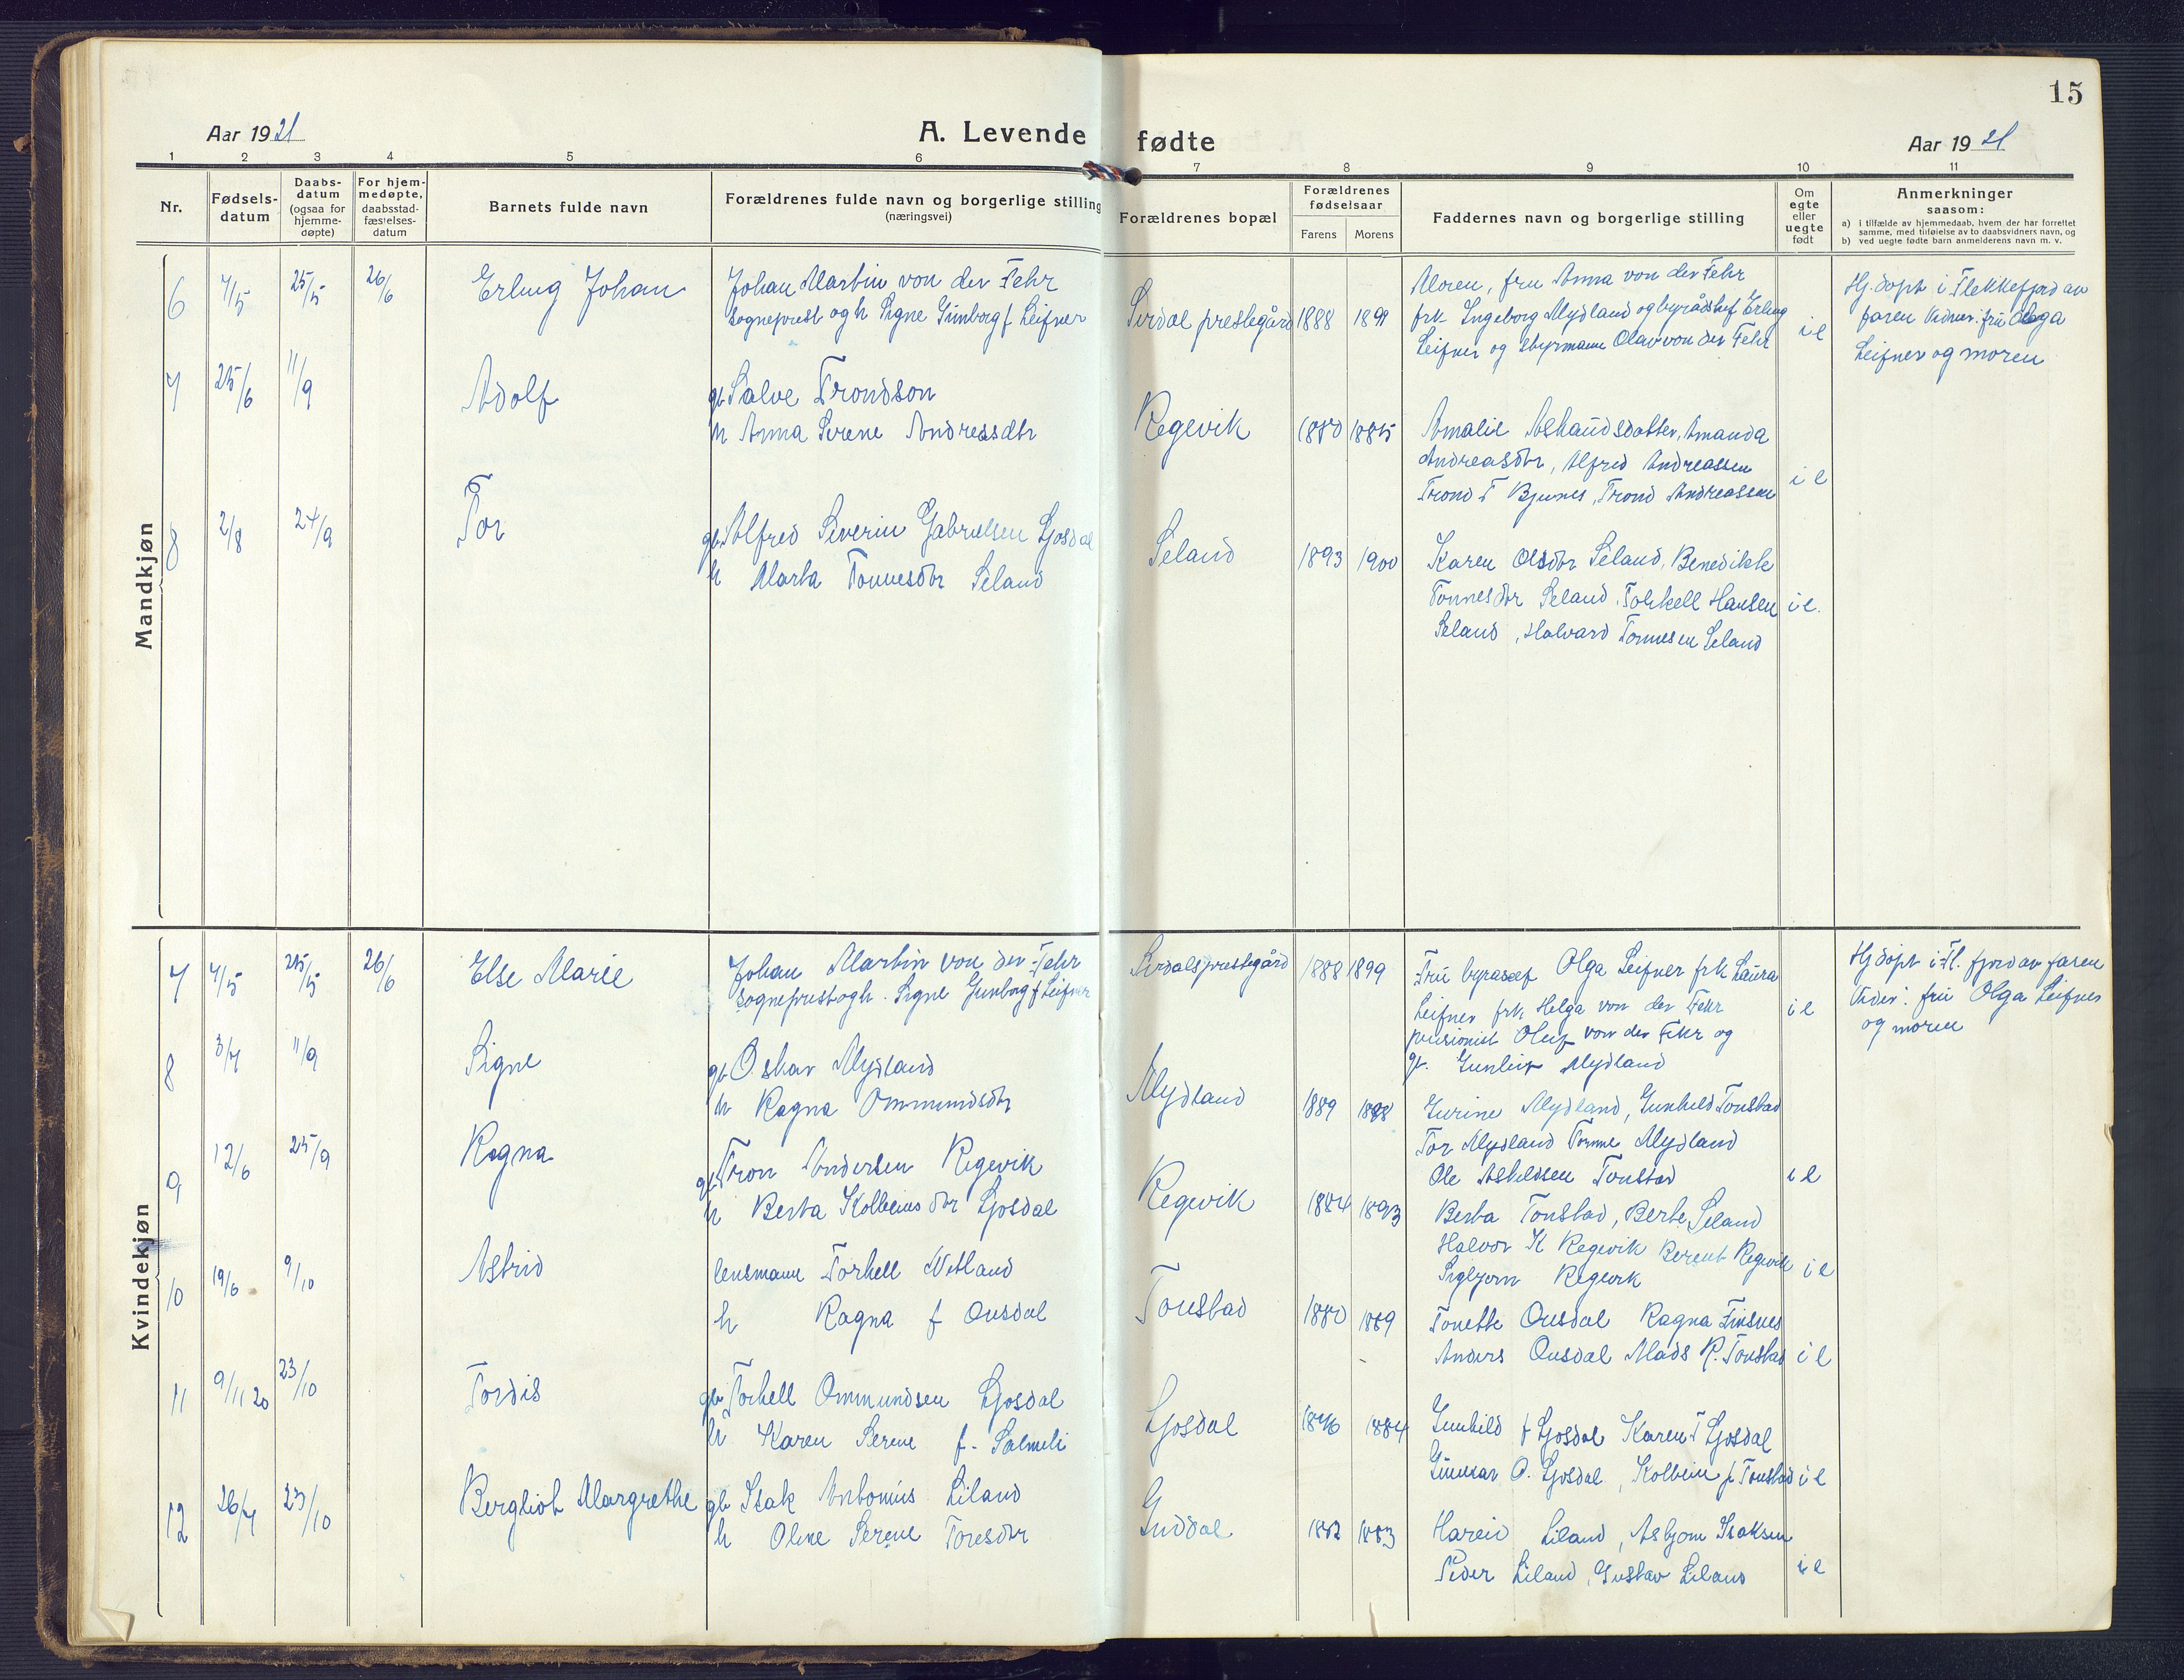 15
Aar 1921
A. Levende fødte
Aar 1921
1 2 3 4 5 6 7 8 9 10 11
Nr.
Fødsels-
datum
Daabs-
datum
(ogsaa for
hjemme-
døpte)
For hjem-
medøpte,
daabsstad-
fæstelses-
datum
Barnets fulde navn
Forældrenes fulde navn og borgerlige stilling
(næringsvei)
Forældrenes bopæl
Forældrenes
fødselsaar
Farens Morens
Faddernes navn og borgerlige stilling
Om
egte
eller
uegte
født
Anmerkninger
saasom:
a) i tilfælde av hjemmedaab, hvem der har forrettet
samme, med tilføielse av to daabsvidners navn, og
b) ved uegte fødte barn anmelderens navn m. v.
Mandkjøn
6 7/5 25/5 26/6 Erling Johan
Johan Martin von der Fehr
sogneprest og h Signe Gunborg f Leifner
Sirdal prestegård 1888 1899
Moren, fru Anna von der Fehr
frk Ingeborg Mydland og byråshef Erling
Leifner og styrmann Olav von der Fehr
i e
Hj. døpt i Flekkefjord av
faren Vidner: fru Olga
Leifner og moren
7 25/6 11/9 Adolf
gb Salve Trondson
h Anna Serene Andreasdtr
Regevik 1880 1885
Amalie Aslaudsdatter, Amanda
Andreasdtr, Alfred Andreassen
Trond T Bjunes, Trond Andreassen
i e
8 2/8 24/9 Tor
gb Alfred Severin Gabrielsen Ljosdal
h Marta Tonnesdtr Seland
Seland 1893 1900
Karen Olsdtr Seland, Benedikte
Tonnesdtr Seland, Tolkell Hansen
Seland, Halvard Tonnesen Seland
i e.
Kvindekjøn
7 7/5 25/5 26/6 Else Marie
Johan Martin von der Fehr
sogneprest og h. Signe Gunborg f Leifner
Sirdals prestegård 1888 1899
Fru Olga Leifner frk Laura
Leifner frk Helga von der Fehr
pensionist Oluf von der Fehr og
gb. Gunleiv Mydland
i e
Hj døpt i Fl. fjord av faren
Vidner: fru Olga Leifner
og moren
8 3/7 11/9 Signe
gb Oskar Mydland
h Ragna Ommundsdtr
Mydland 1889 1888
Gurine Mydland, Gunhild Tonstad
Tor Mydland Tonne Mydland
Ole Tonstad
i e
9 12/6 25/9 Ragna
gb Tron Andersen Regevik
h Berta Kolbeins dtr Ljosdal
Regevik 1884 1893
Berta Tonstad, Berte Seland
Halvor K Regevik Berent Regevik
Sigbjorn Regevik
i e
10 19/6 9/10 Astrid
lensmann Torkell Vetland
h Ragna f Ousdal
Tonstad 1880 1889
Tonette Ousdal Ragna Finsnes
Anders Ousdal Mads R. Tonstad
i e
11 9/11 20 23/10 Tordis
gb Torkell Ommundsen Ljosdal
h Karen Serene f. Salmeli
Ljosdal 1876 1884
Gunhild f Ljosdal Karen T Ljosdal
Gunnar O. Ljosdal, Kolbein f Tonstad
i e
12 26/7 23/10 Bergliot Margrethe
gb Isak Antonius Liland
h Oline Serene Toresdtr
Guddal 1882 1883
Liland, Asbjorn Isaksen
Peder Liland, Gustav Liland
i e